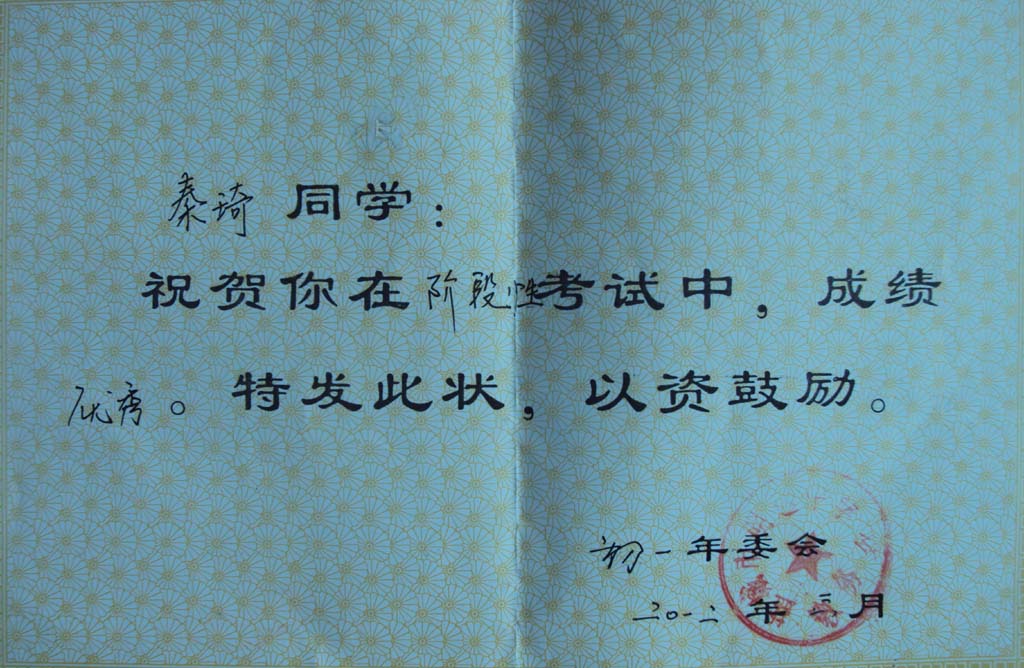 秦琦 同学：
祝贺你在阶段性考试中，成绩
优秀。特发此状，以资鼓励。
初一年委会
二〇一二年三月